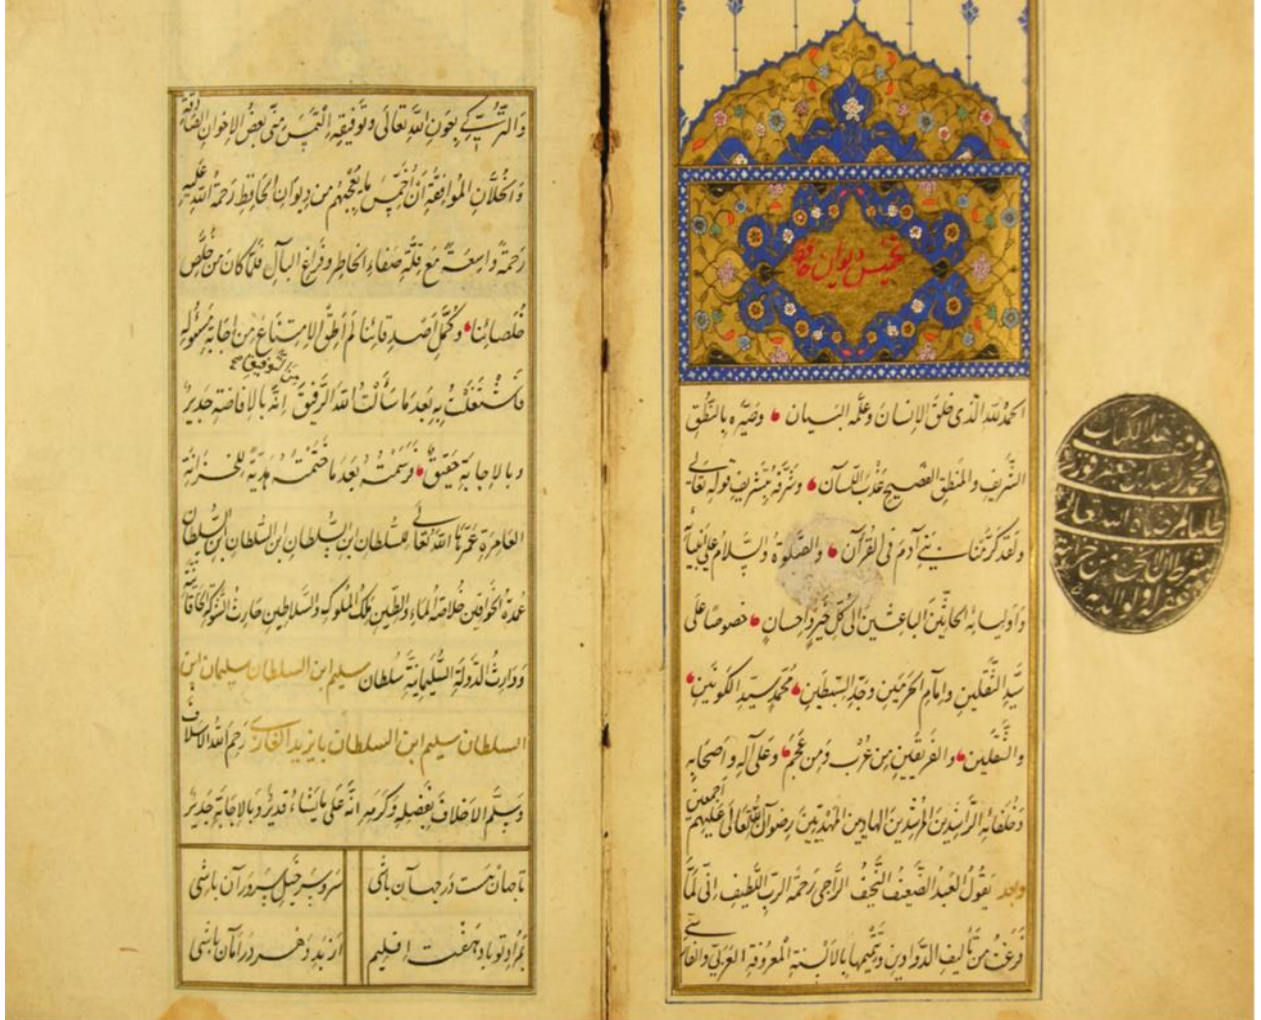 تخميس ديوان حافظ
الحمد لله الذى خلق الانسان وعلمه البيان وصيره بالنطق
الشريف والمنطق الفصيح عذب اللسان وشرفه بتشريف قوله تعالى
ولقد كرمنا بنى آدم فى القرآن والصلوة والسلام على انبيآ
واوليائه الباعثين الى كل خير واحسان خصوصا على
سيد الثقلين وامام الحرمين وجد السبطين محمد سيد الكونين
والثقلين والفريقين من عرب ومن عجم وعلى آله واصحابه
وخلفائه الراشدين المرشدين الهادين المهديين رضوان الله تعالى عليهم اجمعين
وبعد يقول العبد الضعيف النحيف الراجى رحمة الرب اللطيف انى لما
فرغت من تأليف الدواوين وتتميمها بالالسنة المعروفة العربى والفارسى
وقف هذا الكتاب
محمد راشد بن جعفر فوزى
طلبا لمرضاة الله تعالى
بشرط ان لا يخرج من خزانته
غفر له ولوالديه
والتركى بعون الله تعالى وتوفيقه التمس منى بعض الاخوان الصادقة
والخلان الموافقة ان اخمس ما يعجبهم من ديوان الحافظ رحمة الله عليه
رحمة واسعة مع قلة صفاء الخاطر وفراغ البال فلما كان من خلص
خلصائنا وكمل اصدقائنا لم اطق الامتناع من اجابة مسؤله
فاشتغلت به بعد ما سألت الله الرفيق انه بالافاضة جدير
من توفيقه صح
وبالاجابة حقيق وسمت بعد ما ختمت هدية للخزانة
العامرة عمرها الله تعالى للسلطان بن السلطان ابن السلطان ابن السلطان
عمدة الخواقين خلاصة الماء والطين ملك الملوك والسلاطين حارث الشوكة الخاقانية
ووارث الدولة السليمانية سلطان سليم ابن السلطان سليمان ابن
السلطان سليم ابن السلطان بايزيد الغازى رحم الله الاسلاف
وسلم الاخلاف بفضله وكرمه انه على ما يشاء قدير وبالاجابة جدير
تا جهان هست در جهان باشى سرور سر خيل سروران باشى
بمراد تو باد هفت اقليم از بد دهر در امان باشى